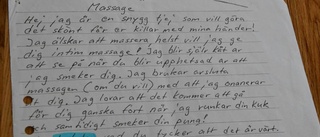 Massage
Hej, jag är en snygg tjej som vill göra
det skönt för er killar med mina händer!
Jag älskar att massera, helst vill jag ge
dig intim massage! Jag blir själv kåt av
att se på när du blir upphetsad av att
jag smeker dig. Jag brukar avsluta
massagen (om du vill) med att jag onanerar
åt dig. Jag lovar att det kommer att gå
för dig ganska fort när jag runkar din kuk
och samtidigt smeker din pung!
du tycker att det är värt.